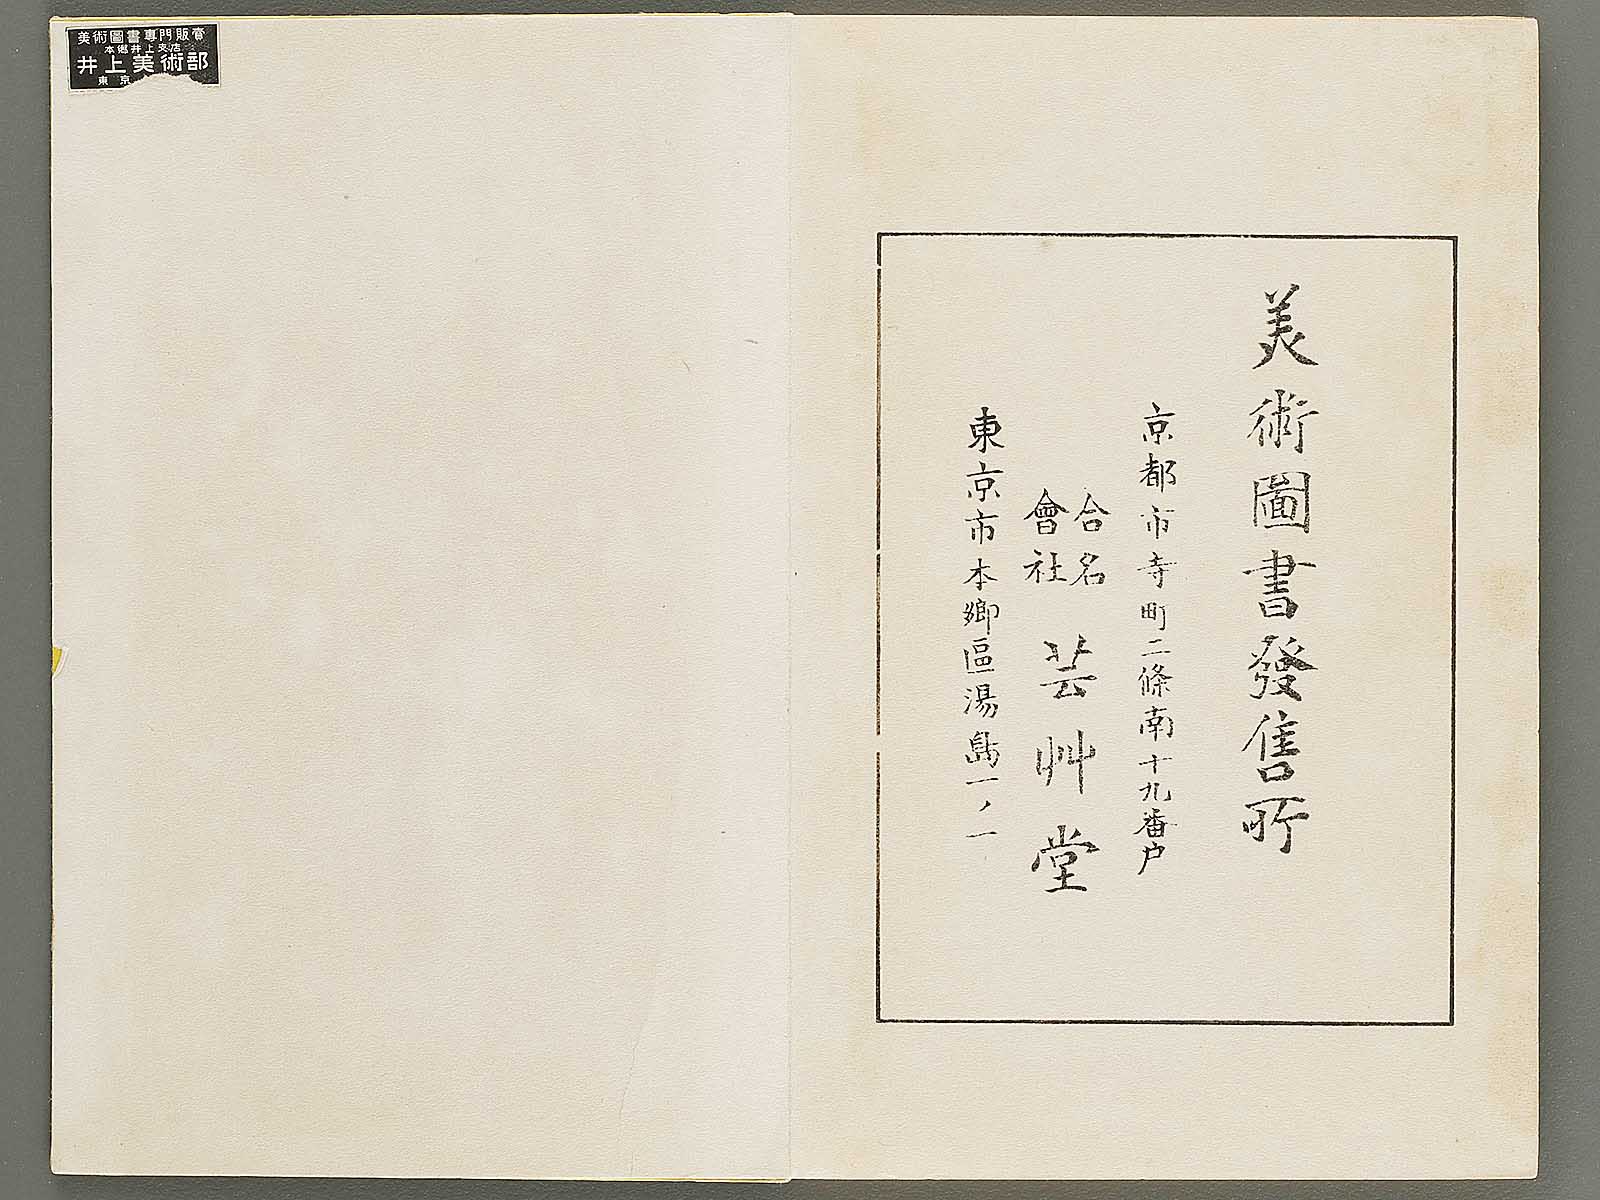 美術圖書發售所
京都市寺町二條南十九番戸
合名會社 芸艸堂
東京市本郷區湯島一ノ一
美術圖書專門販賣
本郷井上支店
井上美術部
東京